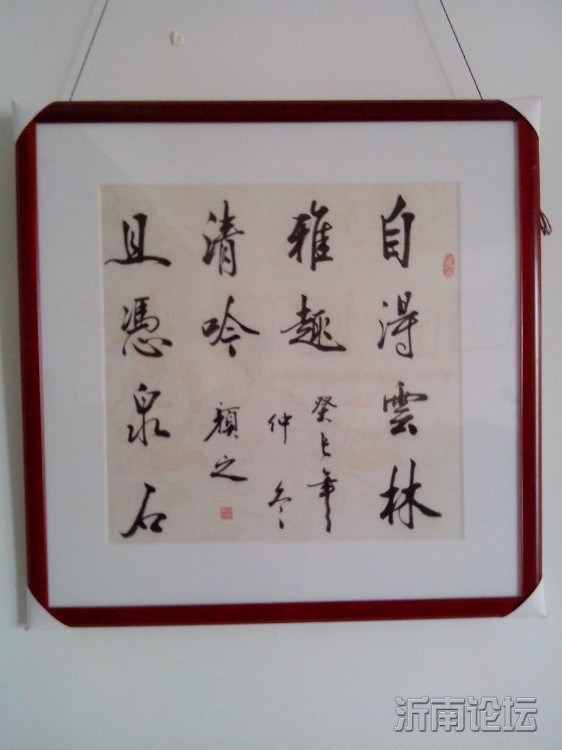 自得雲林
雅趣
癸巳年
仲冬
且憑泉石
清吟
顏之
沂南论坛